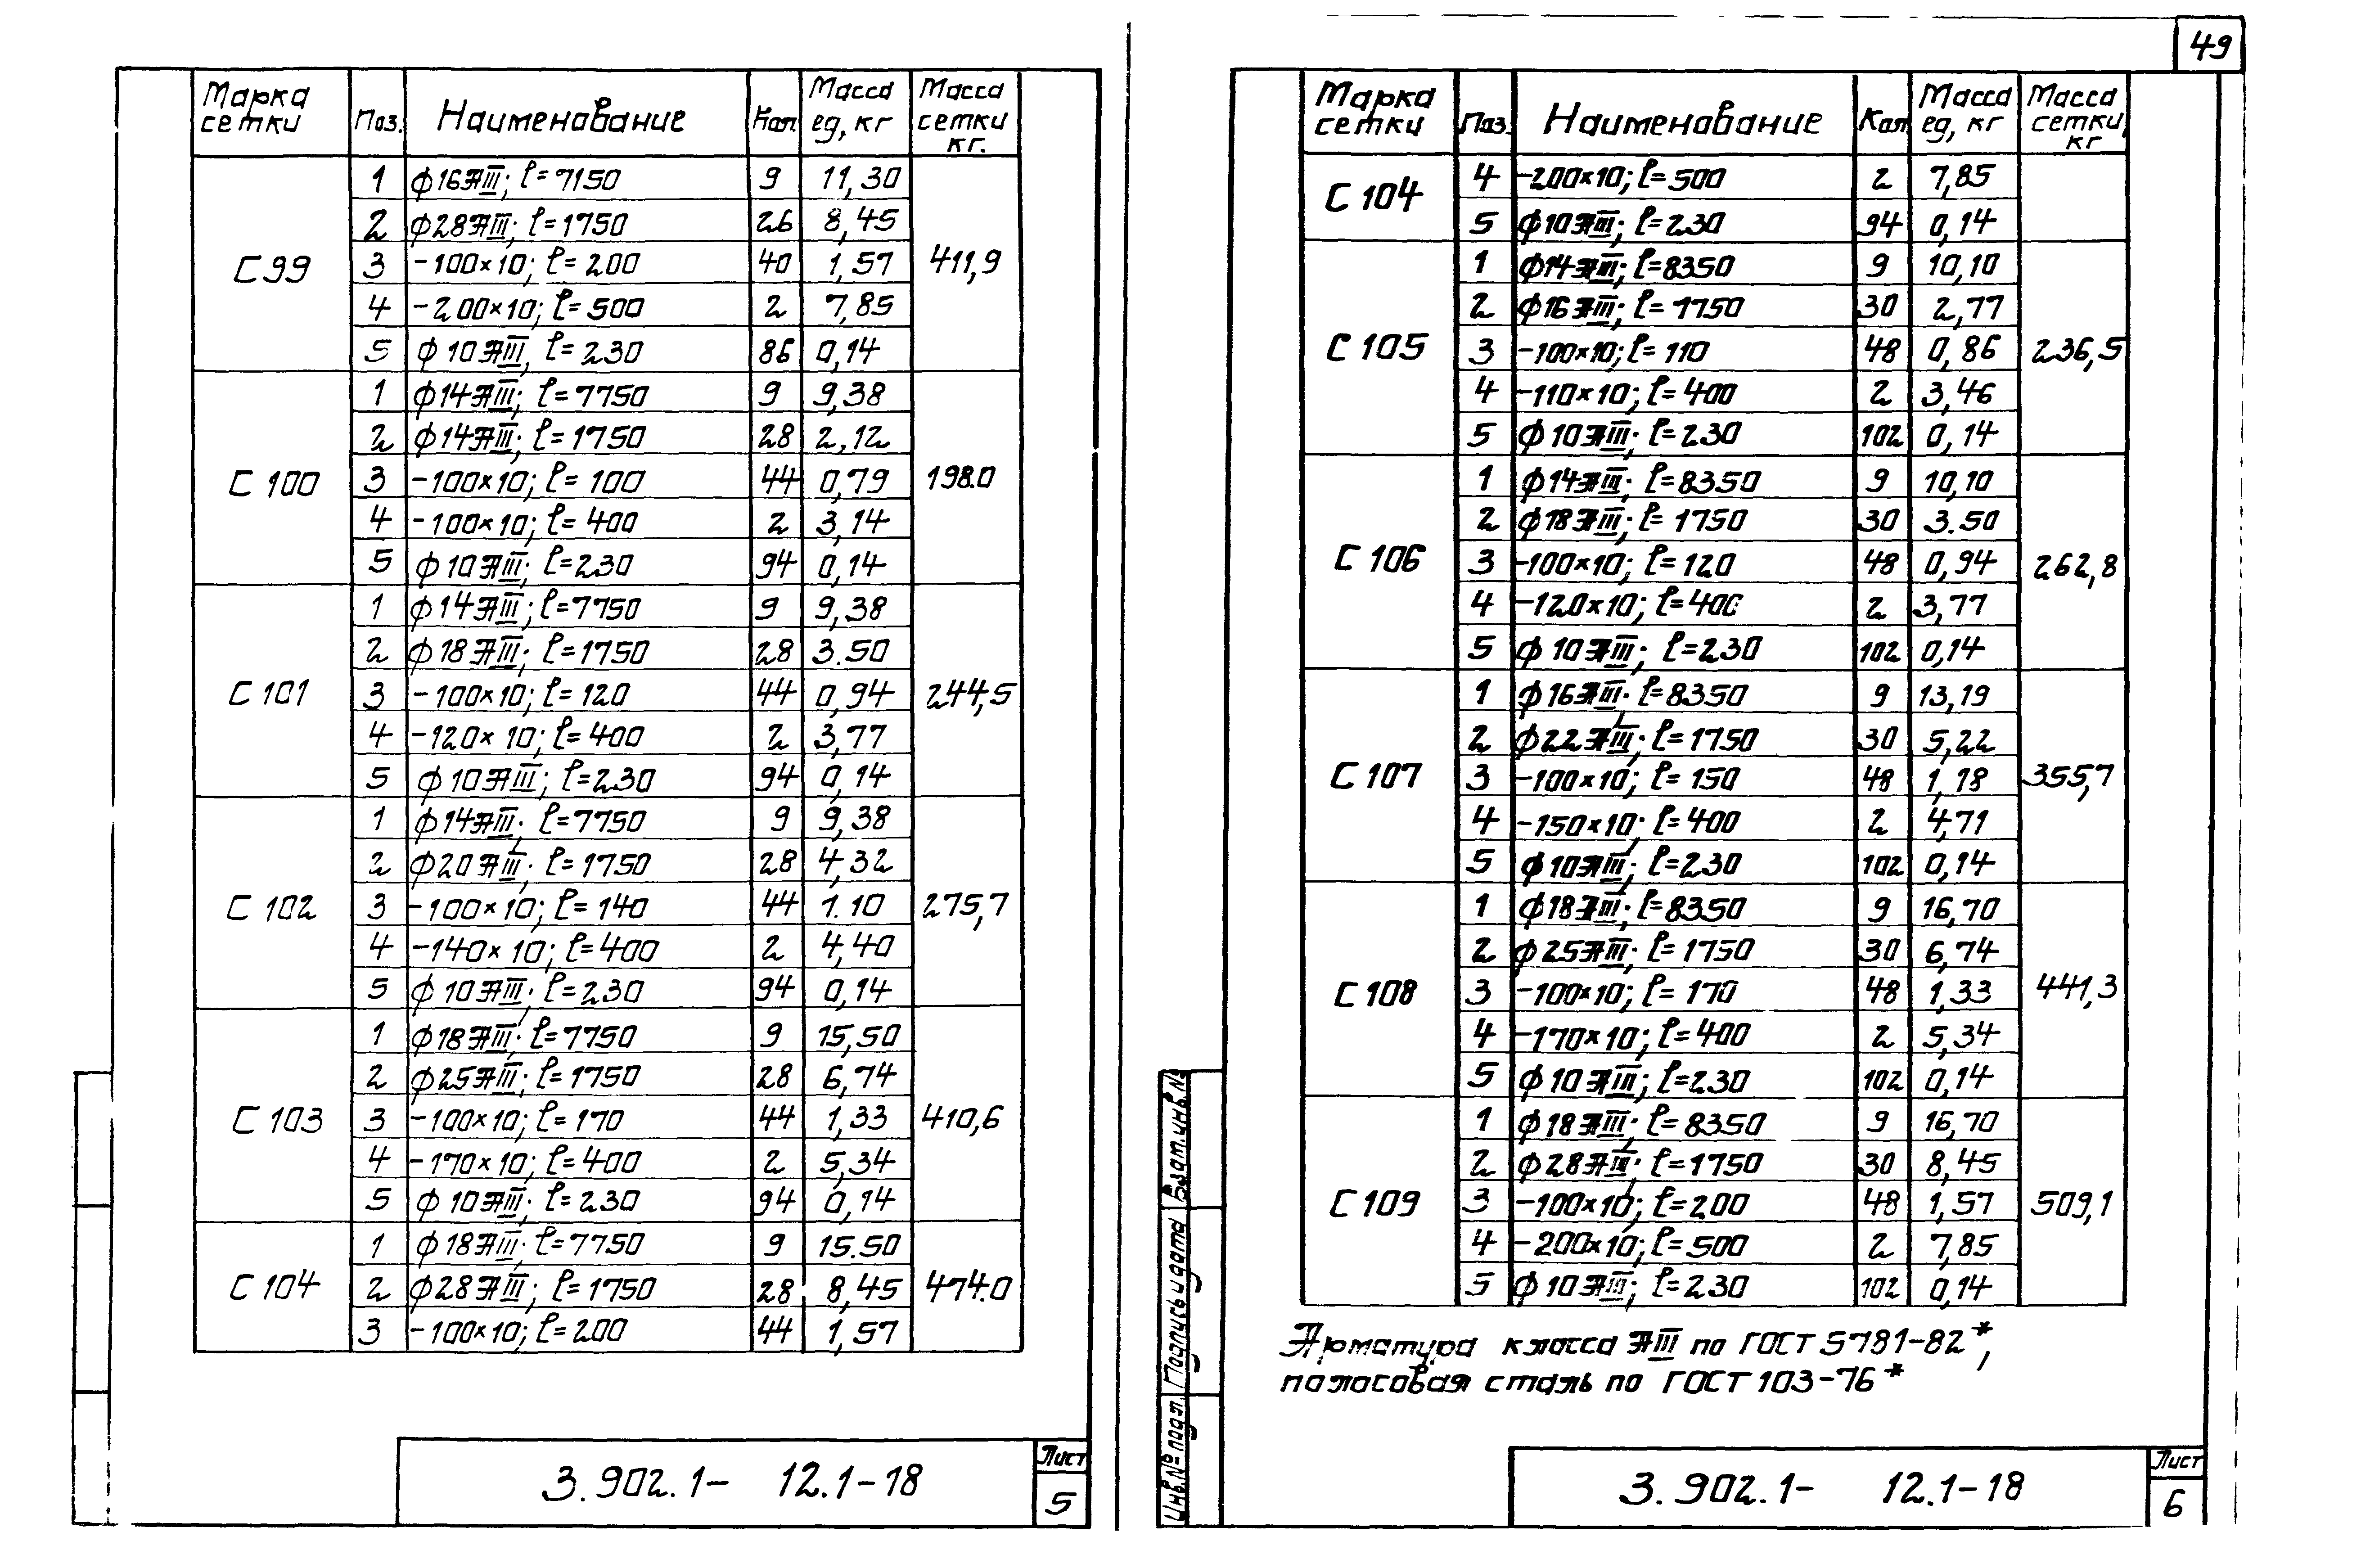 49
Марка сетки Поз. Наименование Кол. Масса ед, кг Масса сетки кг.
С 99
1 ф16АIII; ℓ=7150 9 11,30
2 ф28АIII; ℓ=1750 26 8,45
3 -100×10; ℓ=200 40 1,57 411,9
4 -200×10; ℓ=500 2 7,85
5 ф10АIII, ℓ=230 86 0,14
С 100
1 ф14АIII; ℓ=7750 9 9,38
2 ф14АIII; ℓ=1750 28 2,12
3 -100×10; ℓ=100 44 0,79 198.0
4 -100×10; ℓ=400 2 3,14
5 ф10АIII; ℓ=230 94 0,14
С 101
1 ф14АIII; ℓ=7750 9 9,38
2 ф18АIII; ℓ=1750 28 3.50
3 -100×10; ℓ=120 44 0,94 244,5
4 -120×10; ℓ=400 2 3,77
5 ф10АIII; ℓ=230 94 0,14
С 102
1 ф14АIII; ℓ=7750 9 9,38
2 ф20АIII; ℓ=1750 28 4,32
3 -100×10; ℓ=140 44 1.10 275,7
4 -140×10; ℓ=400 2 4,40
5 ф10АIII; ℓ=230 94 0,14
С 103
1 ф18АIII; ℓ=7750 9 15,50
2 ф25АIII; ℓ=1750 28 6,74
3 -100×10; ℓ=170 44 1,33 410,6
4 -170×10; ℓ=400 2 5,34
5 ф10АIII; ℓ=230 94 0,14
С 104
1 ф18АIII; ℓ=7750 9 15.50
2 ф28АIII; ℓ=1750 28 8,45 474.0
3 -100×10; ℓ=200 44 1,57
3.902.1- 12.1-18
Лист
5
Марка сетки Поз. Наименование Кол. Масса ед, кг Масса сетки, кг
С 104
4 -200×10; ℓ=500 2 7,85
5 ф10АIII; ℓ=230 94 0,14
С 105
1 ф14АIII; ℓ=8350 9 10,10
2 ф16АIII; ℓ=1750 30 2,77
3 -100×10; ℓ=110 48 0,86 236,5
4 -110×10; ℓ=400 2 3,46
5 ф10АIII; ℓ=230 102 0,14
С 106
1 ф14АIII; ℓ=8350 9 10,10
2 ф18АIII; ℓ=1750 30 3.50
3 -100×10; ℓ=120 48 0,94 262,8
4 -120×10; ℓ=400 2 3,77
5 ф10АIII; ℓ=230 102 0,14
С 107
1 ф16АIII; ℓ=8350 9 13,19
2 ф22АIII; ℓ=1750 30 5,22
3 -100×10; ℓ=150 48 1,18 355,7
4 -150×10; ℓ=400 2 4,71
5 ф10АIII; ℓ=230 102 0,14
С 108
1 ф18АIII; ℓ=8350 9 16,70
2 ф25АIII; ℓ=1750 30 6,74
3 -100×10; ℓ=170 48 1,33 441,3
4 -170×10; ℓ=400 2 5,34
5 ф10АIII; ℓ=230 102 0,14
С 109
1 ф18АIII; ℓ=8350 9 16,70
2 ф28АIII; ℓ=1750 30 8,45
3 -100×10; ℓ=200 48 1,57 509,1
4 -200×10; ℓ=500 2 7,85
5 ф10АIII; ℓ=230 102 0,14
Арматура класса АIII по ГОСТ 5781-82*,
полосовая сталь по ГОСТ 103-76*
Инв.№ подл. Подпись и дата Взам.инв.№
3.902.1- 12.1-18
Лист
6